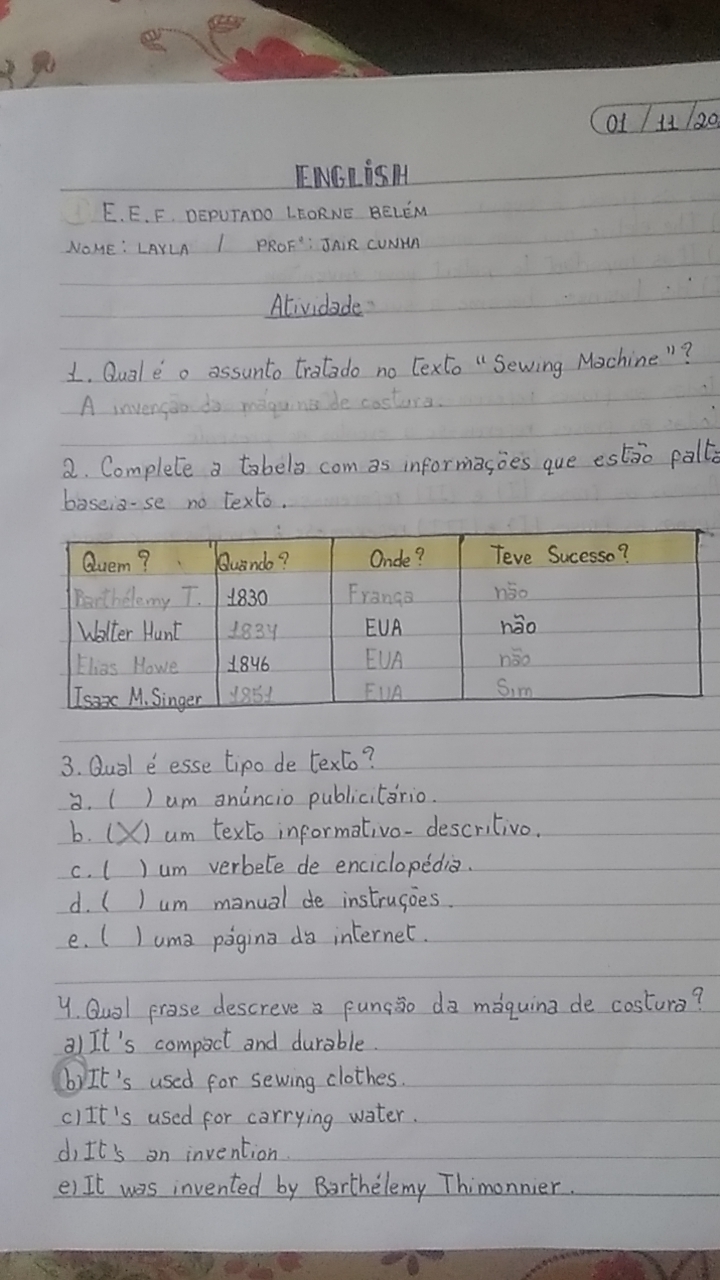 01/11/20
ENGLISH
E.E.F. DEPUTADO LEORNE BELÉM
NOME: LAYLA / PROFº: JAIR CUNHA
Atividade
1. Qual é o assunto tratado no texto "Sewing Machine"?
A invenção da máquina de costura.
2. Complete a tabela com as informações que estão falta
baseia-se no texto.
Quem? Quando? Onde? Teve Sucesso?
Barthélemy T. 1830 França não
Walter Hunt 1834 EUA não
Elias Howe 1846 EUA não
Isaac M. Singer 1851 EUA Sim
3. Qual é esse tipo de texto?
a. ( ) um anúncio publicitário.
b. (X) um texto informativo-descritivo.
c. ( ) um verbete de enciclopédia.
d. ( ) um manual de instruções.
e. ( ) uma página da internet.
4. Qual frase descreve a função da máquina de costura?
a) It's compact and durable.
b) It's used for sewing clothes.
c) It's used for carrying water.
d) It's an invention.
e) It was invented by Barthélemy Thimonnier.